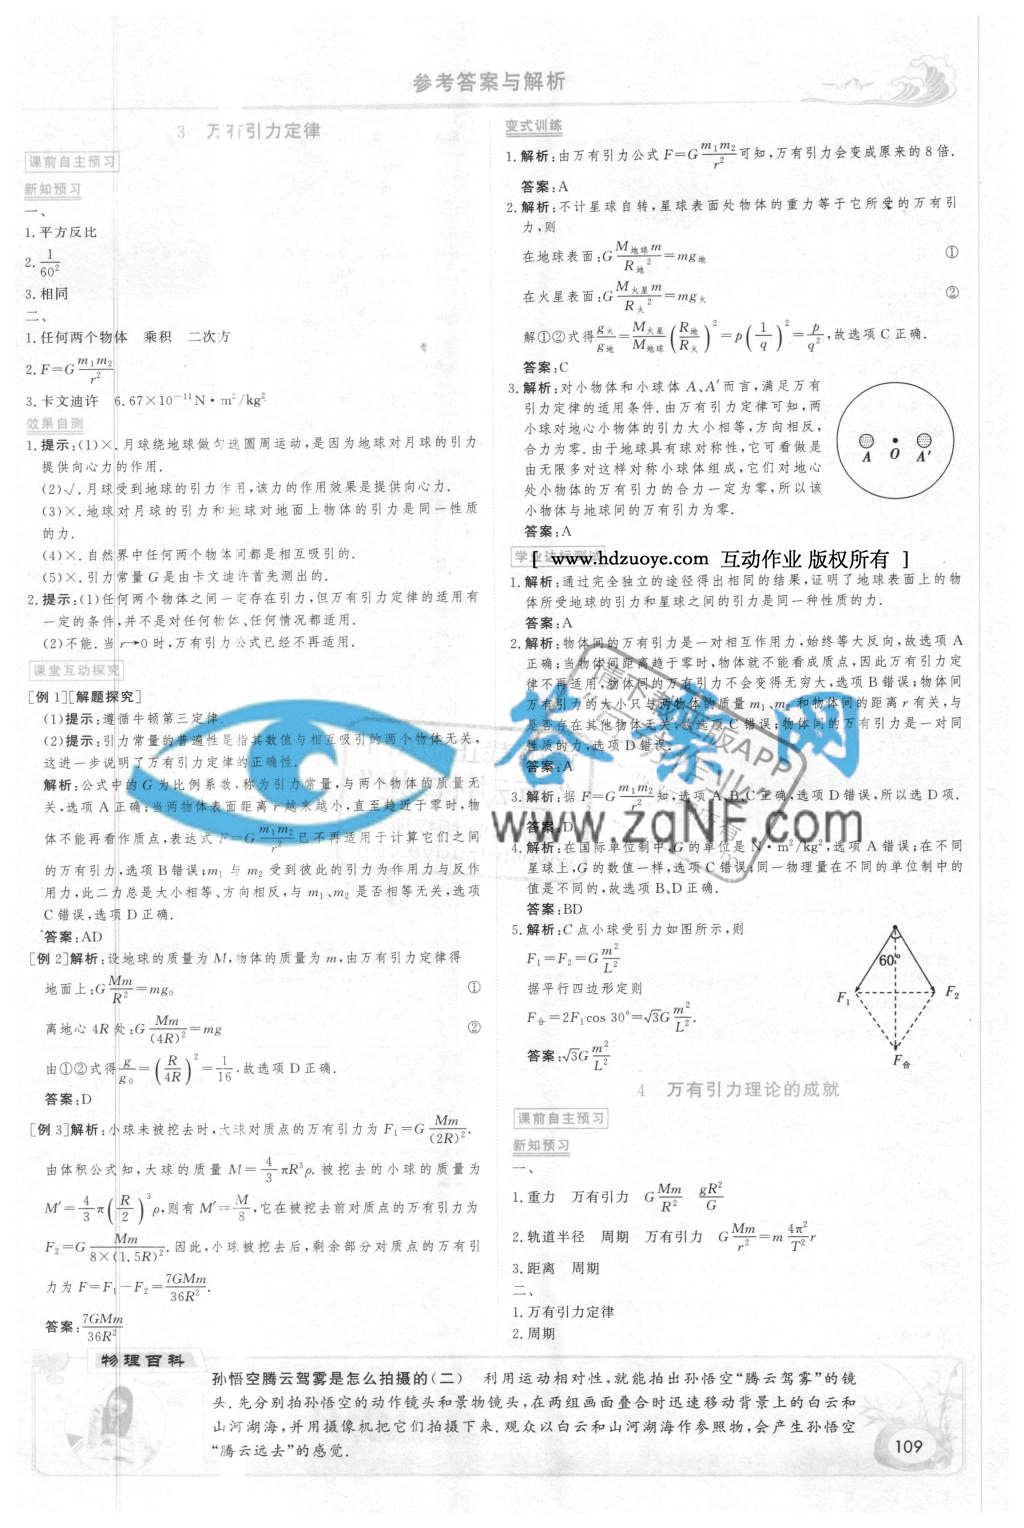 参考答案与解析
3 万有引力定律
课前自主预习
新知预习
一、
1.平方反比
2.1/60²
3.相同
二、
1.任何两个物体 乘积 二次方
2.F=Gm₁m₂/r²
3.卡文迪许 6.67×10⁻¹¹N·m²/kg²
效果自测
1.提示:(1)×.月球绕地球做匀速圆周运动,是因为地球对月球的引力
提供向心力的作用.
(2)√.月球受到地球的引力作用,该力的作用效果是提供向心力.
(3)×.地球对月球的引力和地球对地面上物体的引力是同一性质
的力.
(4)×.自然界中任何两个物体间都是相互吸引的.
(5)×.引力常量G是由卡文迪许首先测出的.
2.提示:(1)任何两个物体之间一定存在引力,但万有引力定律的适用有
一定的条件,并不是对任何物体、任何情况都适用.
(2)不能.当r→0时,万有引力公式已经不再适用.
课堂互动探究
[例1][解题探究]
(1)提示:遵循牛顿第三定律.
(2)提示:引力常量的普适性是指其数值与相互吸引的两个物体无关,
这进一步说明了万有引力定律的正确性.
解析:公式中的G为比例系数,称为引力常量,与两个物体的质量无
关,选项A正确;当两物体表面距离r越来越小,直至趋近于零时,物
体不能再看作质点,表达式F=Gm₁m₂/r²已不再适用于计算它们之间
的万有引力,选项B错误;m₁与m₂受到彼此的引力为作用力与反作
用力,此二力总是大小相等、方向相反,与m₁、m₂是否相等无关,选项
C错误,选项D正确.
答案:AD
[例2]解析:设地球的质量为M,物体的质量为m,由万有引力定律得
地面上:GMm/R²=mg₀ ①
离地心4R处:GMm/(4R)²=mg ②
由①②式得g/g₀=(R/4R)²=1/16.故选项D正确.
答案:D
[例3]解析:小球未被挖去时,大球对质点的万有引力为F₁=GMm/(2R)².
由体积公式知,大球的质量M=4/3πR³ρ.被挖去的小球的质量为
M′=4/3π(R/2)³ρ,则有M′=M/8,它在被挖去前对质点的万有引力为
F₂=GMm/8×(1.5R)².因此,小球被挖去后,剩余部分对质点的万有引
力为F=F₁-F₂=7GMm/36R².
答案:7GMm/36R²
变式训练
1.解析:由万有引力公式F=Gm₁m₂/r²可知,万有引力会变成原来的8倍.
答案:A
2.解析:不计星球自转,星球表面处物体的重力等于它所受的万有引
力,则
在地球表面:GM地球m/R地²=mg地 ①
在火星表面:GM火星m/R火²=mg火 ②
解①②式得g火/g地=M火星/M地球(R地/R火)²=p(1/q)²=p/q²,故选项C正确.
答案:C
3.解析:对小物体和小球体A、A′而言,满足万有
引力定律的适用条件.由万有引力定律可知,两
小球对地心小物体的引力大小相等,方向相反,
合力为零.由于地球具有球对称性,它可看做是
由无限多对这样对称小球体组成,它们对地心
处小物体的万有引力的合力一定为零,所以该
小物体与地球间的万有引力为零.
A O A′
答案:A
学业达标测试
[ www.hdzuoye.com 互动作业 版权所有 ]
1.解析:通过完全独立的途径得出相同的结果,证明了地球表面上的物
体所受地球的引力和星球之间的引力是同一种性质的力.
答案:A
2.解析:物体间的万有引力是一对相互作用力,始终等大反向,故选项A
正确;当物体间距离趋于零时,物体就不能看成质点,因此万有引力定
律不再适用,物体间的万有引力不会变得无穷大,选项B错误;物体间
万有引力的大小只与两物体的质量m₁、m₂和物体间的距离r有关,与
是否存在其他物体无关,故选项C错误;物体间的万有引力是一对同
性质的力,选项D错误.
答案:A
3.解析:据F=Gm₁m₂/r²知,选项A、B、C正确,选项D错误,所以选D项.
答案:D
4.解析:在国际单位制中,G的单位是N·m²/kg²,选项A错误;在不同
星球上,G的数值一样,选项C错误;同一物理量在不同的单位制中的
值是不同的,故选项B、D正确.
答案:BD
5.解析:C点小球受引力如图所示,则
F₁=F₂=Gm²/L²
据平行四边形定则
F合=2F₁cos 30°=√3Gm²/L².
答案:√3Gm²/L²
60°
F₁ F₂
F合
4 万有引力理论的成就
课前自主预习
新知预习
一、
1.重力 万有引力 GMm/R² gR²/G
2.轨道半径 周期 万有引力 GMm/r²=m4π²/T²r
3.距离 周期
二、
1.万有引力定律
2.周期
答案网
www.zqNF.com
物理百科
孙悟空腾云驾雾是怎么拍摄的(二) 利用运动相对性,就能拍出孙悟空“腾云驾雾”的镜
头.先分别拍孙悟空的动作镜头和景物镜头,在两组画面叠合时迅速移动背景上的白云和
山河湖海,并用摄像机把它们拍摄下来.观众以白云和山河湖海作参照物,会产生孙悟空
“腾云远去”的感觉.
109